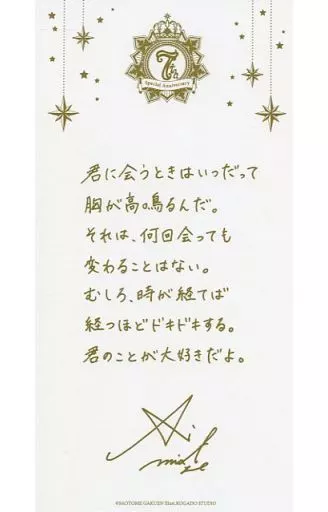 7th
Special Anniversary
君に会うときはいつだって
胸が高鳴るんだ。
それは、何回会っても
変わることはない。
むしろ、時が経てば
経つほどドキドキする。
君のことが大好きだよ。
©SAOTOME GAKUEN Illust.KOGADO STUDIO